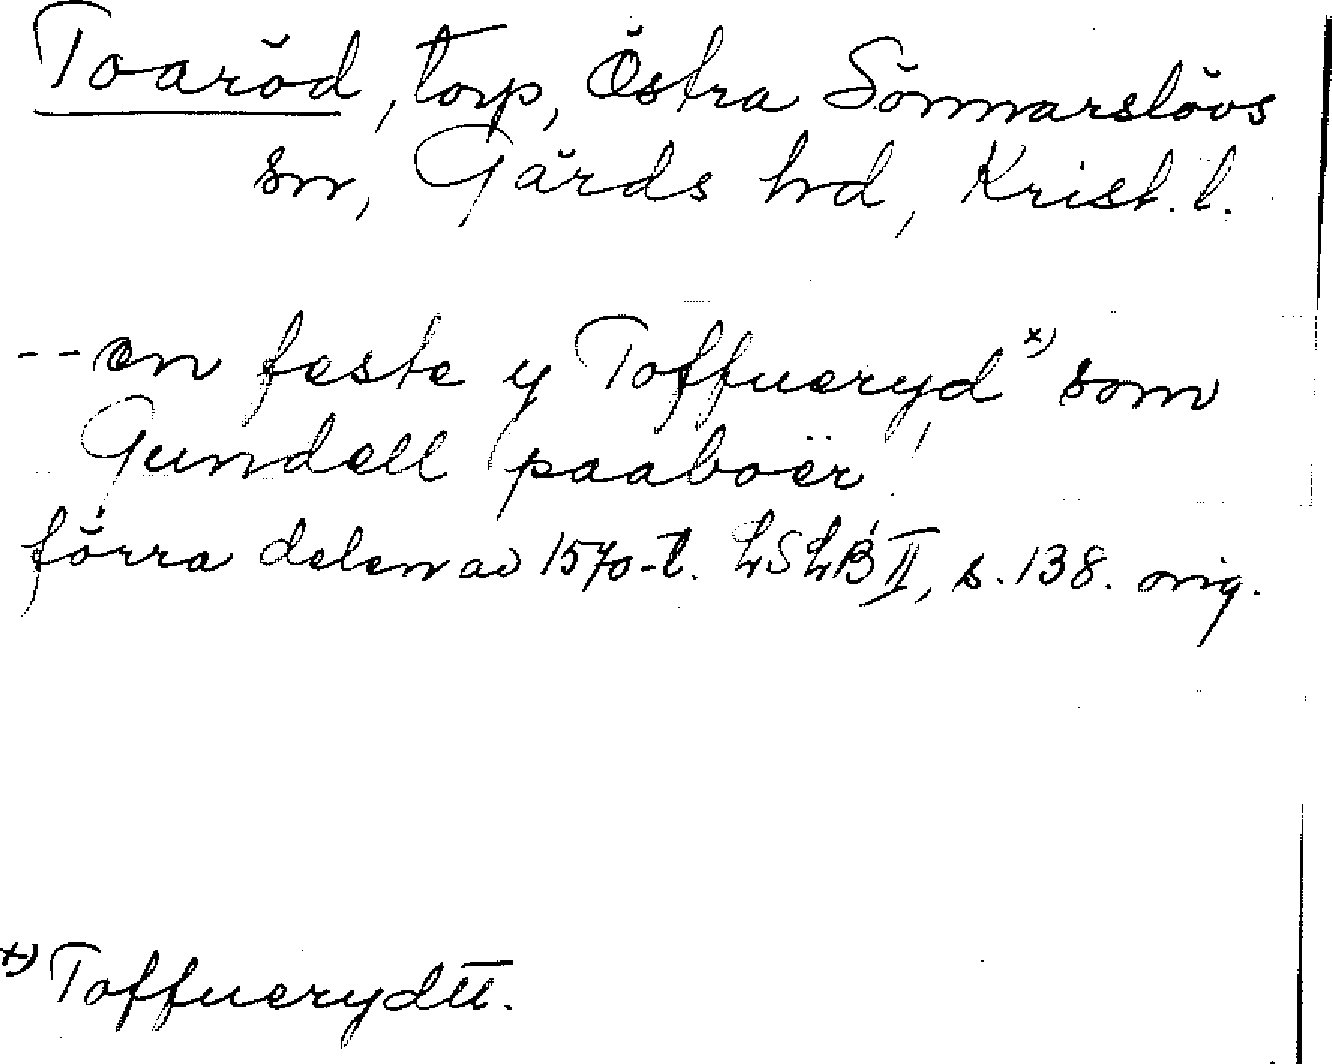 Toaröd, torp, Östra Sönnarslövs
sn, Gärds hd, Krist. l.
-- en feste y Toffueryd x) som
Gundell paaboer
förra delen av 1570-t. LSLB II, s. 138. orig.
x) Toffuerydtt.